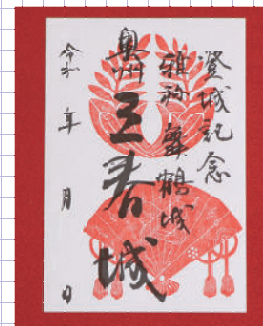 登城記念
雅称 舞鶴城
奥州 三春城
令和 年 月 日